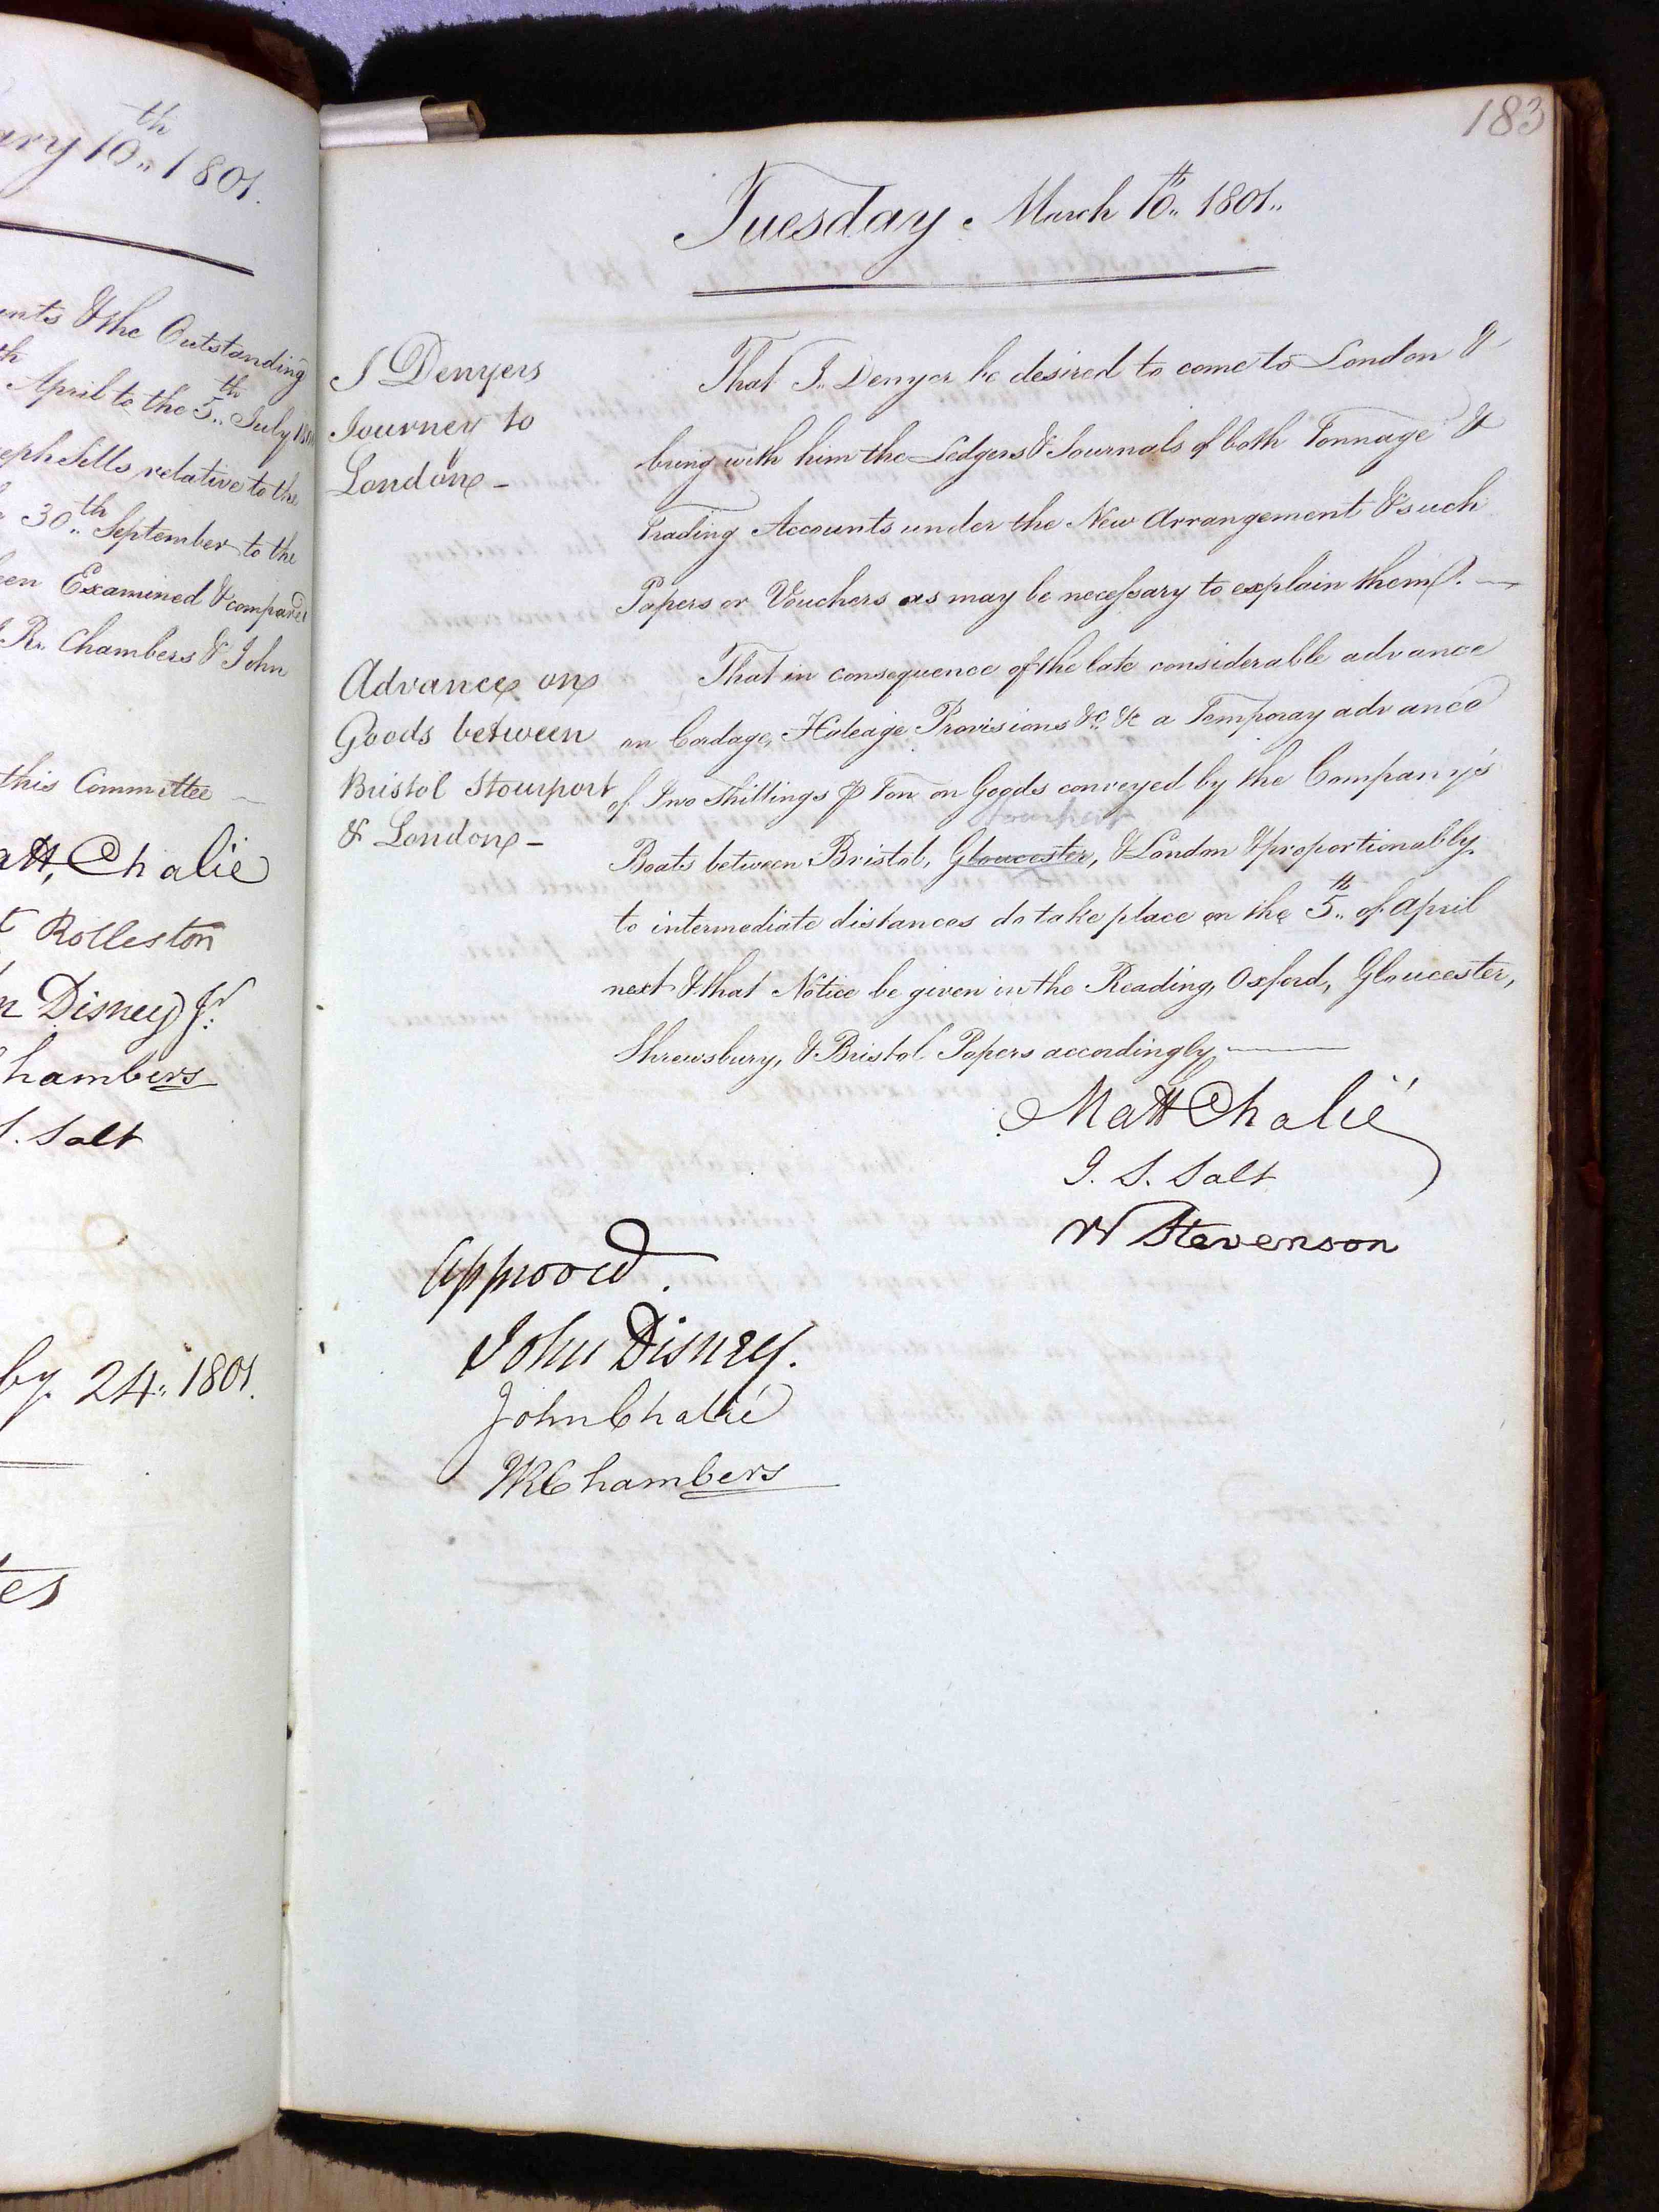 ary 10th 1801.
ents & the Outstanding
th
April to the 5th July
eph Sills relative to the
30th September to the
en Examined & compared
R. Chambers & John
this Committee
att, Chalie
t Rolleston
n Disney Jr
hambers
S. Salt
by 24: 1801.
tes
183
Tuesday March 10th 1801..
J Denyers
Journey to
London -
That J. Denyer be desired to come to London &
bring with him the Ledgers & Journals of both Tonnage &
Trading Accounts under the New Arrangement & such
Papers or Vouchers as may be necessary to explain them.
Advance on
Goods between
Bristol Stourport
& London -
That in consequence of the late considerable advance
on Cordage, Haleage Provisions &c. &c a Temporay advance
of Two Shillings ⅌ Ton on Goods conveyed by the Company's
Stourport
Boats between Bristol, Gloucester, & London & proportionably
to intermediate distances do take place on the 5th of April
next & that Notice be given in the Reading, Oxford, Gloucester,
Shrewsbury, & Bristol Papers accordingly
Matt Chalié
J. S. Salt
W Stevenson
Approved.
John Disney.
John Chalié
WR Chambers